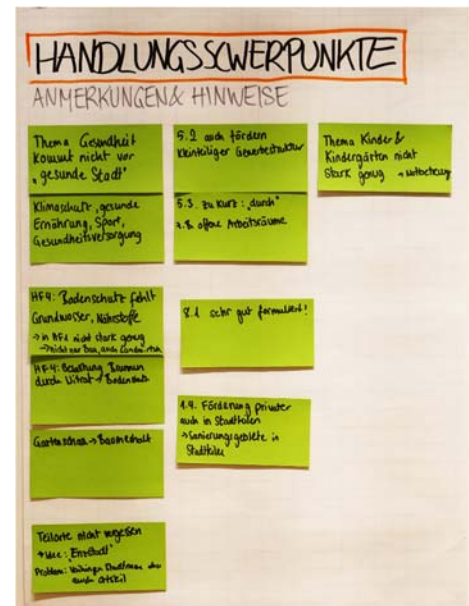 HANDLUNGSSCWERPUNKTE
ANMERKUNGEN & HINWEISE
Thema Gesundheit
kommt nicht vor
"gesunde Stadt"
Klimaschutz, gesunde
Ernährung, Sport,
Gesundheitsversorgung
HF4: Bodenschutz fehlt
Grundwasser, Nährstoffe
→ in HF1 nicht stark genug
→ nicht nur Bau, auch
HF4: Belastung Brunnen
durch Nitrat →
Gartenschau → Baumerhalt
Teilorte nicht vergessen
Problem: Vaihingen
auch
5.2 auch fördern
kleinteiliger Gewerbestruktur
5.3. zu kurz: "durch"
z.B. offene Arbeitsräume
8.1 sehr gut formuliert!
1.4. Förderung privater
auch in Stadtteilen
→ Sanierungsgebiete in
Stadtteilen
Thema Kinder &
Kindergärten nicht
stark genug